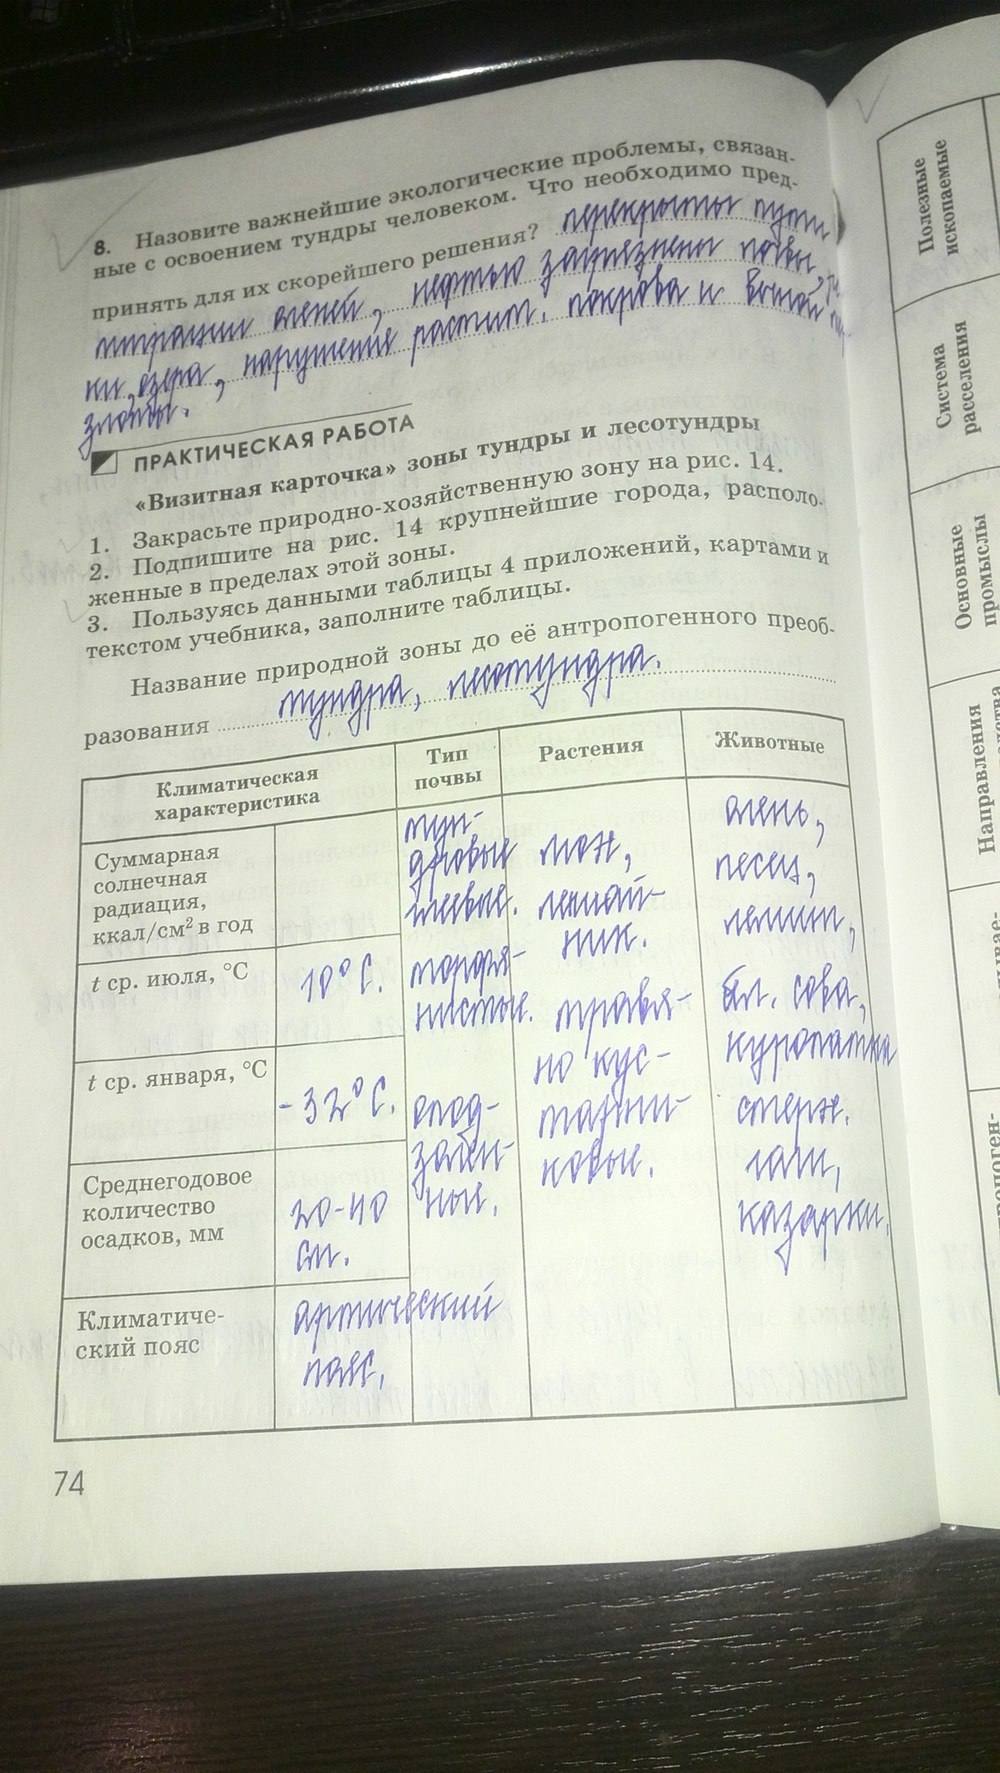 8. Назовите важнейшие экологические проблемы, связан-
ные с освоением тундры человеком. Что необходимо пред-
принять для их скорейшего решения? перекрыты пути
миграции оленей, нефтью загрязнены почвы,
ки, озера, нарушение растит. покрова и
ПРАКТИЧЕСКАЯ РАБОТА
«Визитная карточка» зоны тундры и лесотундры
1. Закрасьте природно-хозяйственную зону на рис. 14.
2. Подпишите на рис. 14 крупнейшие города, располо-
женные в пределах этой зоны.
3. Пользуясь данными таблицы 4 приложений, картами и
текстом учебника, заполните таблицы.
Название природной зоны до её антропогенного преоб-
разования тундра, лесотундра.
Климатическая
характеристика
Тип
почвы
Растения
Животные
Суммарная
солнечная
радиация,
ккал/см² в год
t ср. июля, °С
10° С.
t ср. января, °С
-32° С.
Среднегодовое
количество
осадков, мм
20-40
см.
Климатиче-
ский пояс
арктический
пояс.
тун-
дровые
глеевые.
торфя-
нистые.
мох,
лишай-
ник.
травя-
но кус-
тарни-
ковые.
олень,
песец,
лемминг,
бел. сова,
куропатка
стерх.
казарки.
74
Полезные
ископаемые
Система
расселения
Основные
промыслы
Направления